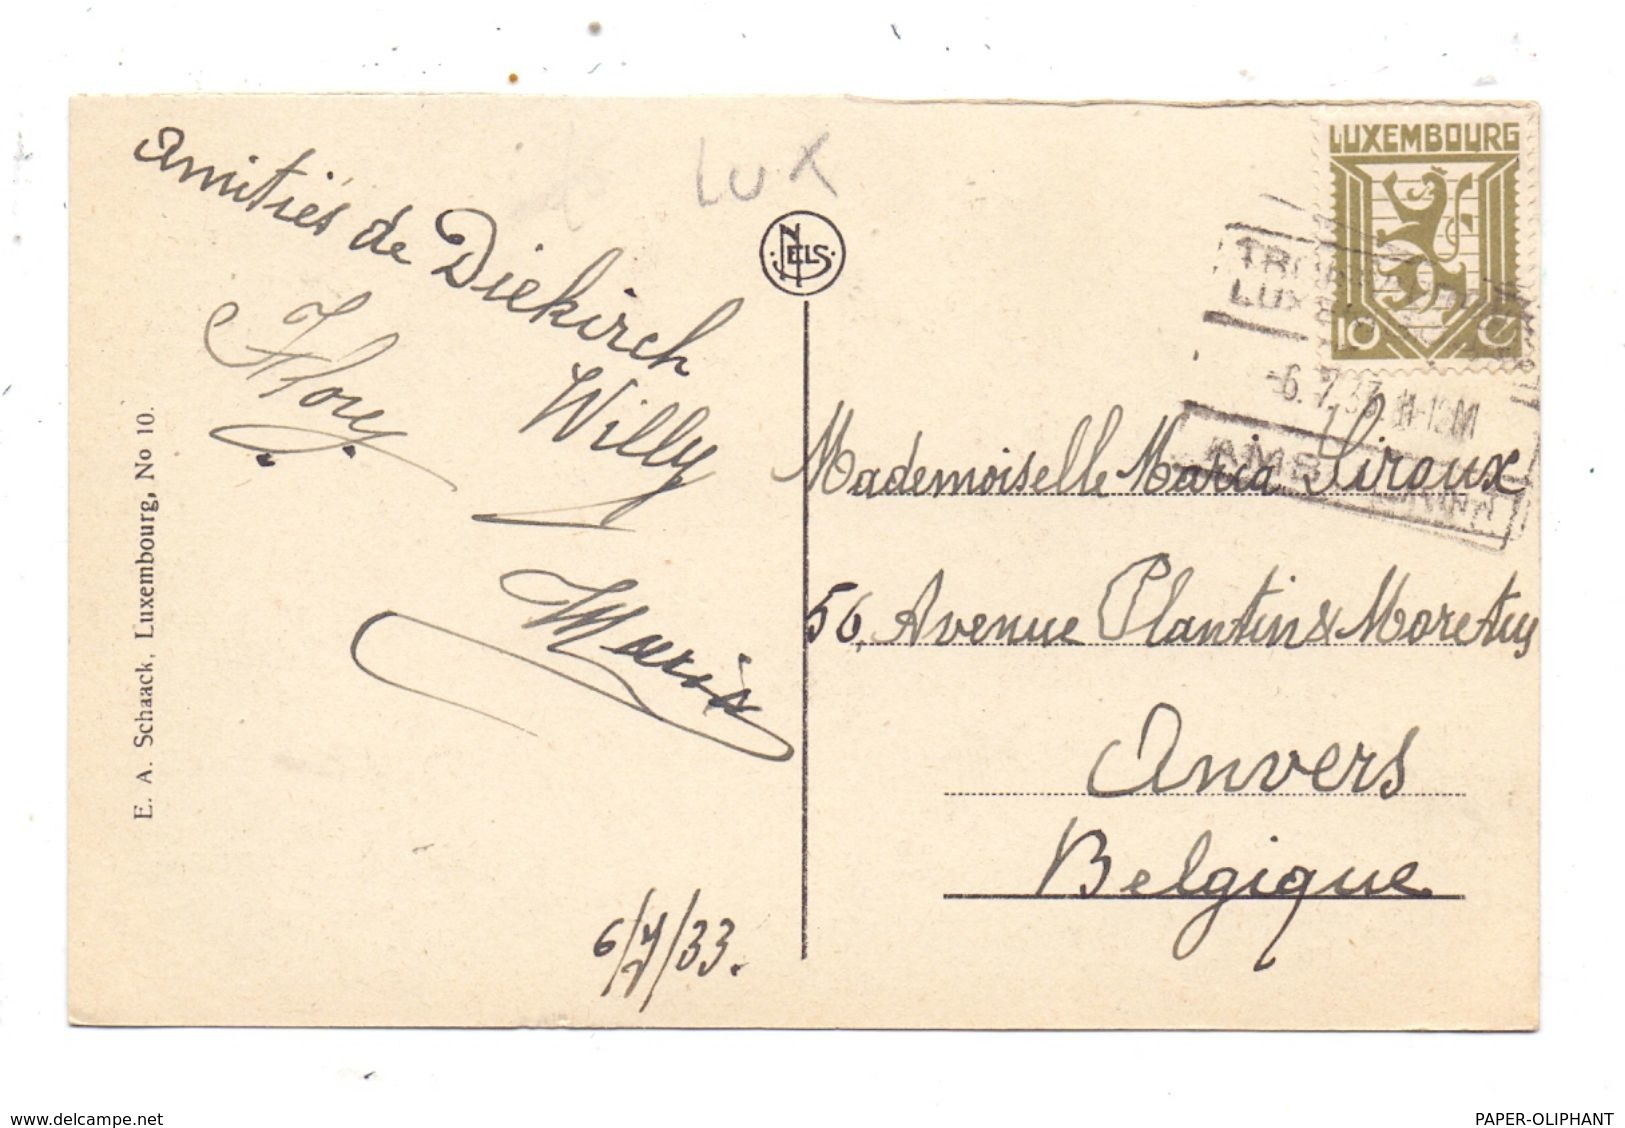 Amitiés de Diekirch
Willy
Flory
Maria
6/7/33.
LUX
NELS
E. A. Schaack, Luxembourg, No 10.
LUXEMBOURG
10 C
-6.7.33 11-12M
AMB
Mademoiselle Maria Siroux
56, Avenue Plantin & Moretus
Anvers
Belgique
www.delcampe.net
PAPER-OLIPHANT